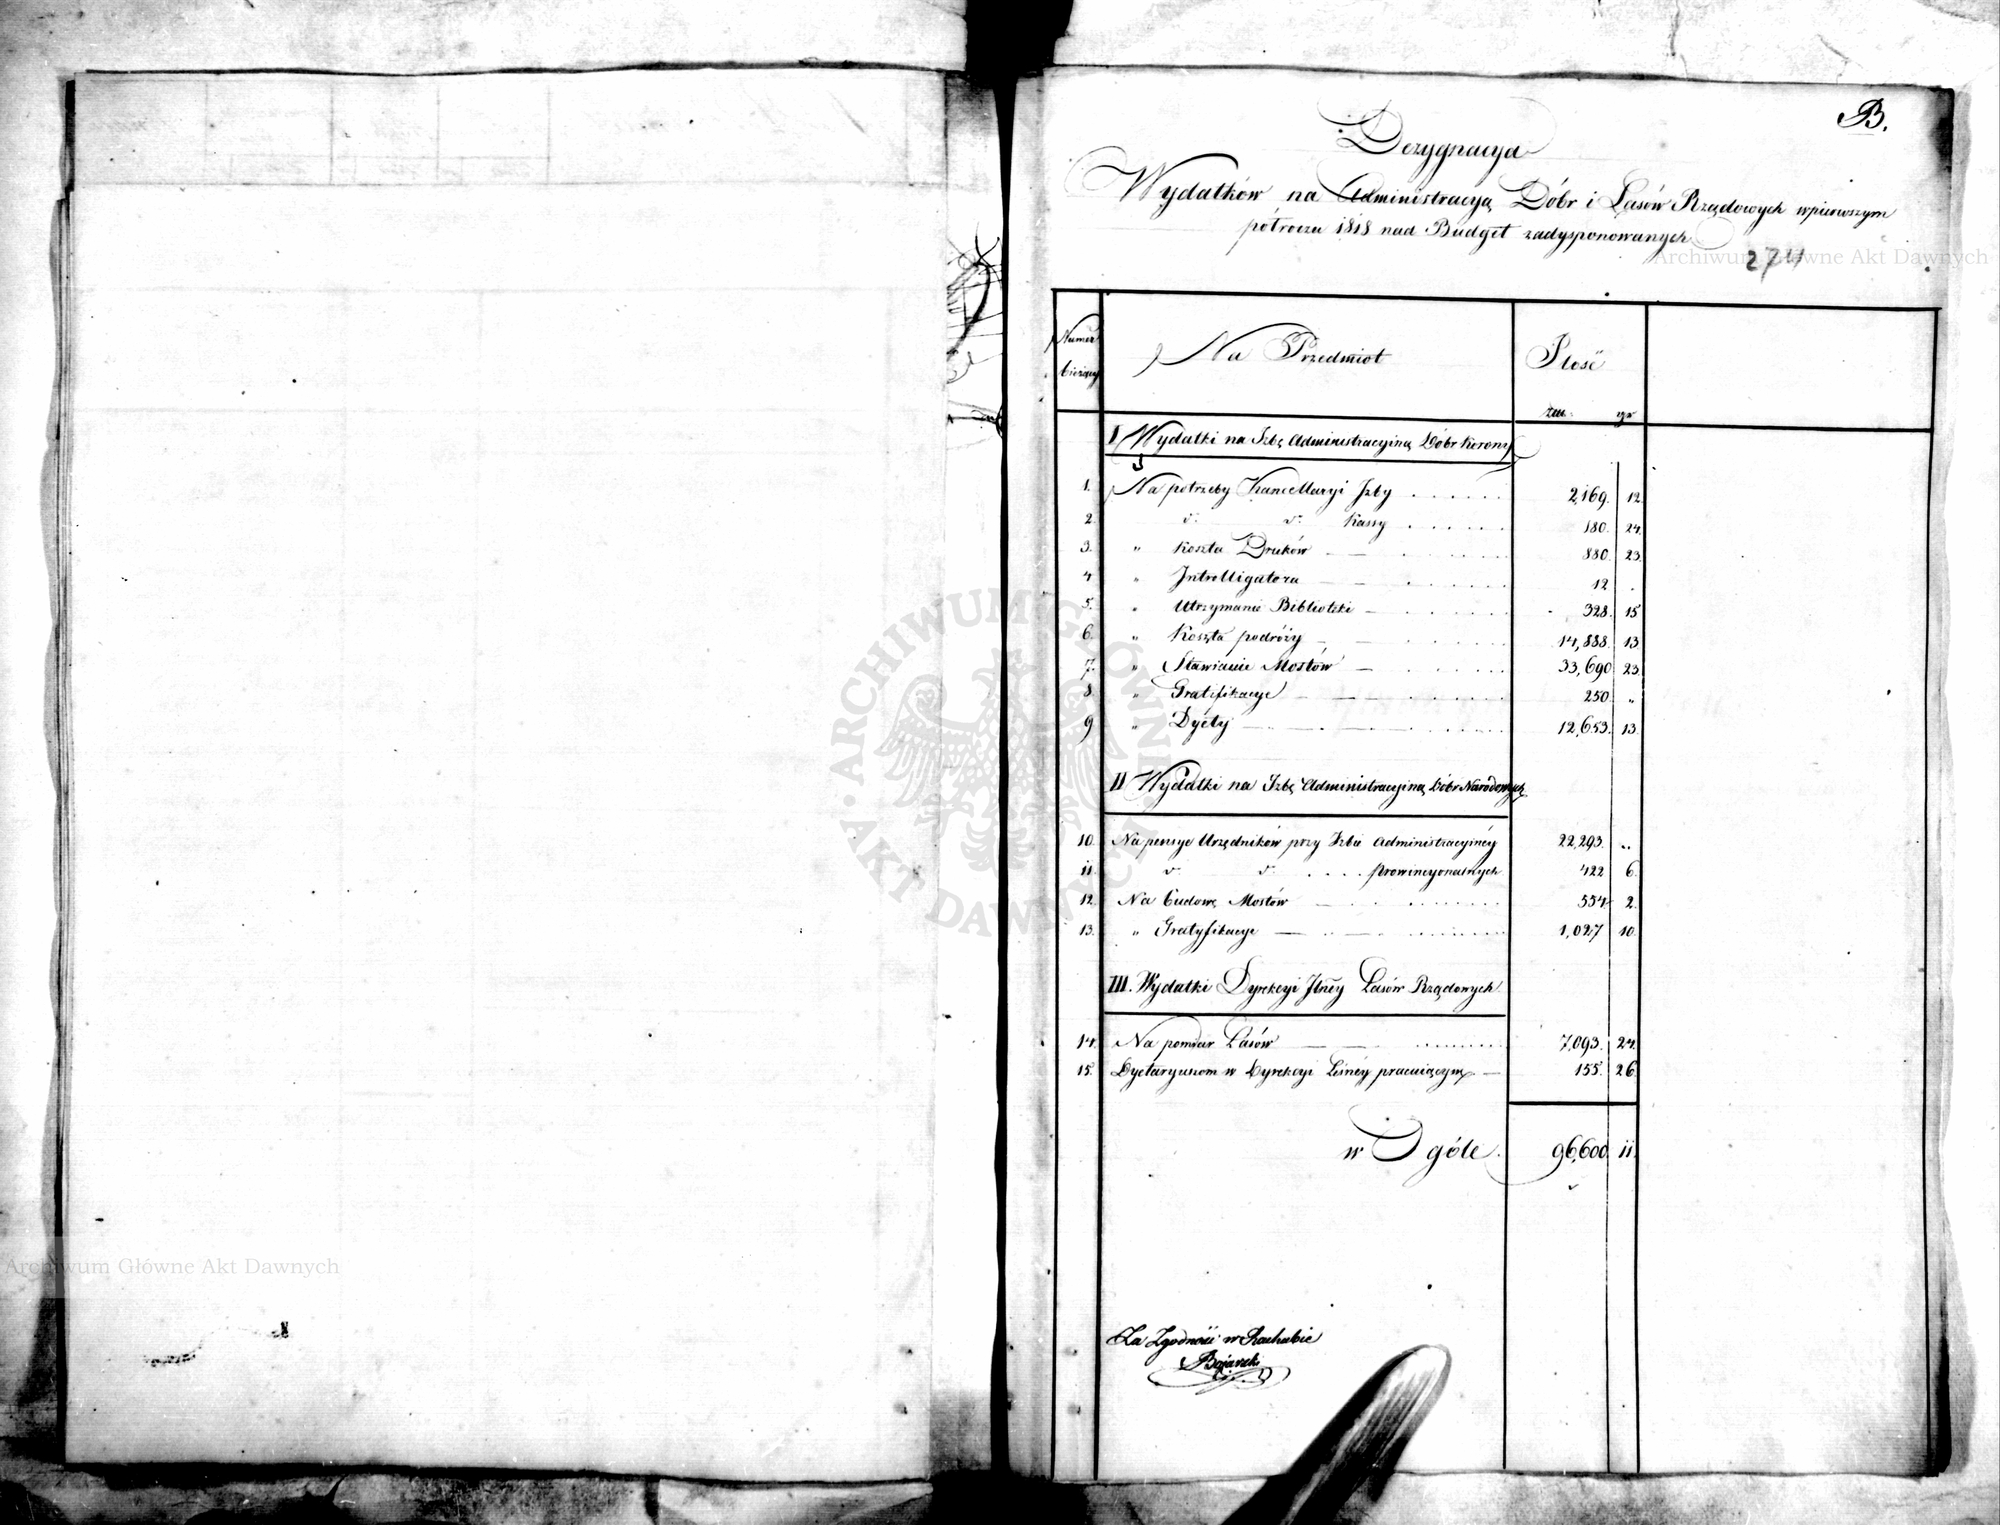 B.
Dezygnacya
Wydatków na Administracyą Dóbr i Lasów Rządowych w pierwszym
półroczu 1818 nad Budget zadysponowanych
274
Archiwum Główne Akt Dawnych
Numer bieżący
Na Przedmiot
Ilość
złp. gr
I Wydatki na Izbę Administracyiną Dóbr Korony
1. Na potrzeby Kancellaryi Izby . . . . . . 2,169. 12
2. d°. d°. Kassy . . . . . . 180. 24.
3. " Koszta Druków — — . . . . . 880. 23.
4 " Introlligatora — — . . . . . 12 .
5. " Utrzymanie Biblioteki — . . . . . 328. 15
6. " Koszta podróży — — . . . . . 14,888. 13
7. " Stawianie Mostów — . . . . . 33,690 23.
8. " Gratifikacye — — . . . . . 250 "
9 " Dyety — — — . . . . . 12,653. 13.
II Wydatki na Izbę Administracyiną Dóbr Narodowych
10. Na pensye Urzędników przy Izbie Administracyinéy 22,293. "
11. d°. d°. . . . . prowincyonalnych 422 6.
12. Na budowę Mostów — . . . . . 554 2.
13. " Gratyfikacye — — . . . . . 1,027 10.
III. Wydatki Dyrekcyi Jlney Lasów Rządowych
14. Na pomiar Lasów — — . . . . . 7,093. 24.
15. Dyetaryuszom w Dyrekcyi Leśnéy pracuiącym — 155. 26
w Ogóle. 96,600 11.
Za Zgodność w Rachubie
Bojarski
ARCHIWUM GŁÓWNE AKT DAWNYCH
Archiwum Główne Akt Dawnych